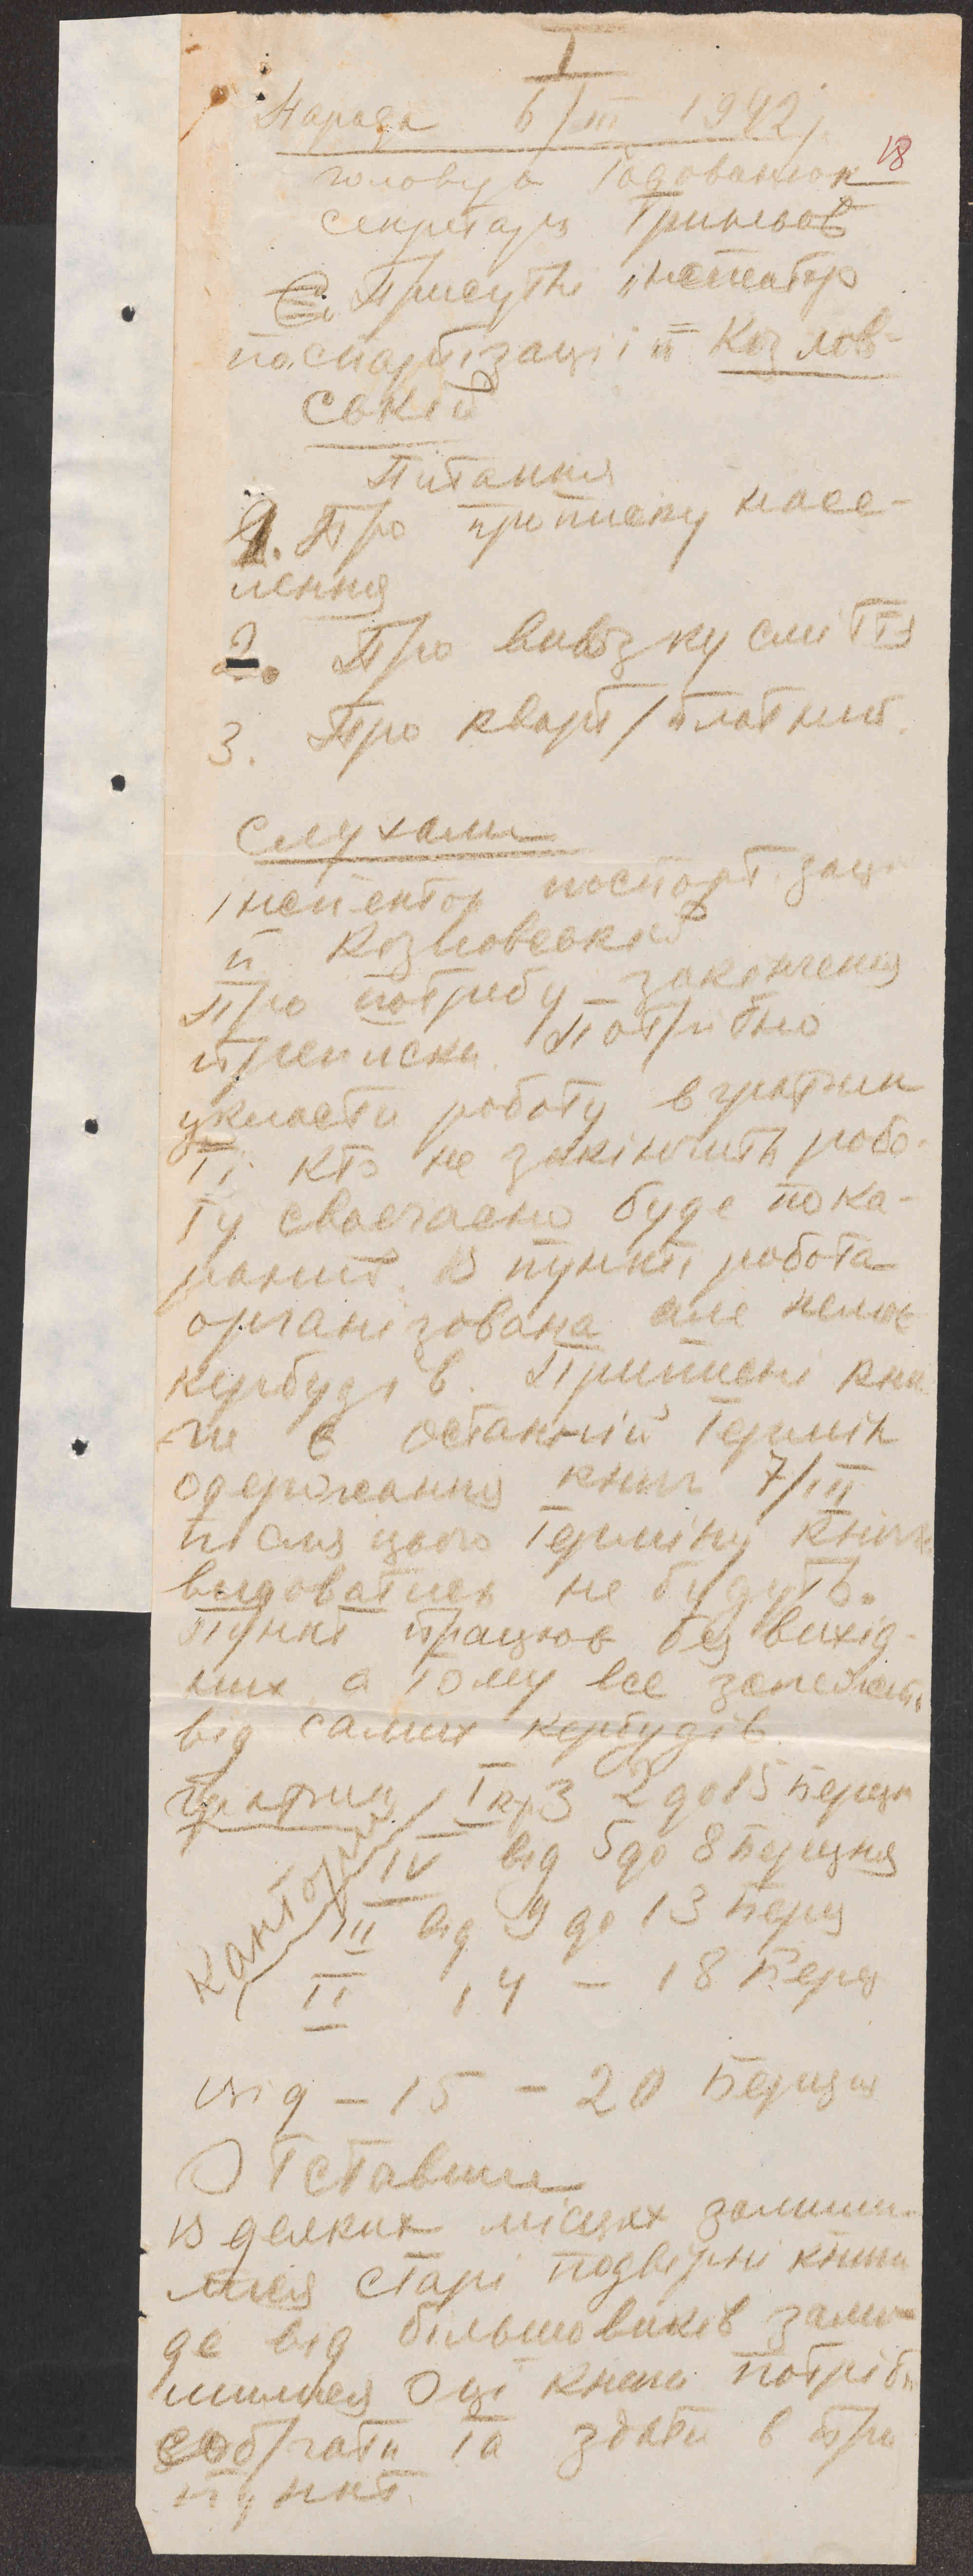 I
Нарада 6/III 1942 р
18
голову а Годованюк
секретарь Гриньов
Присутні інспектор
паспартізаціі п Козлов-
ській
Пітання
1. Про прописку насе-
лення
2. Про вивозку сміття
3. Про кварт/платню.
Слухали
Інспектор паспорт.заці
п Козловській
Про потребу закінчення
прописки. Потрібно
укласти роботу в графи
Ті кто не закінчить робо-
ту своєчасно буде пока-
раний. В пункті робота
організована але немає
кербудів. Приписні кни
ги є останній термін
одержання книг 7/III
після цього терміну книг
видоватись не будуть.
Пункт працює без вихід-
них, а тому все залежить
від самих кербудів.
Графику I кр З 2 до 15 Березн
IV від 5 до 8 Березня
Канторы
III від 9 до 13 Берез
II 14 - 18 Берез
від - 15 - 20 Березня
Отставши
В деяких місцях залиши-
лися старі подвірні книги
де від більшовиків зали-
шилися Оці книги потрібн
собрати та здати в при
пункт.